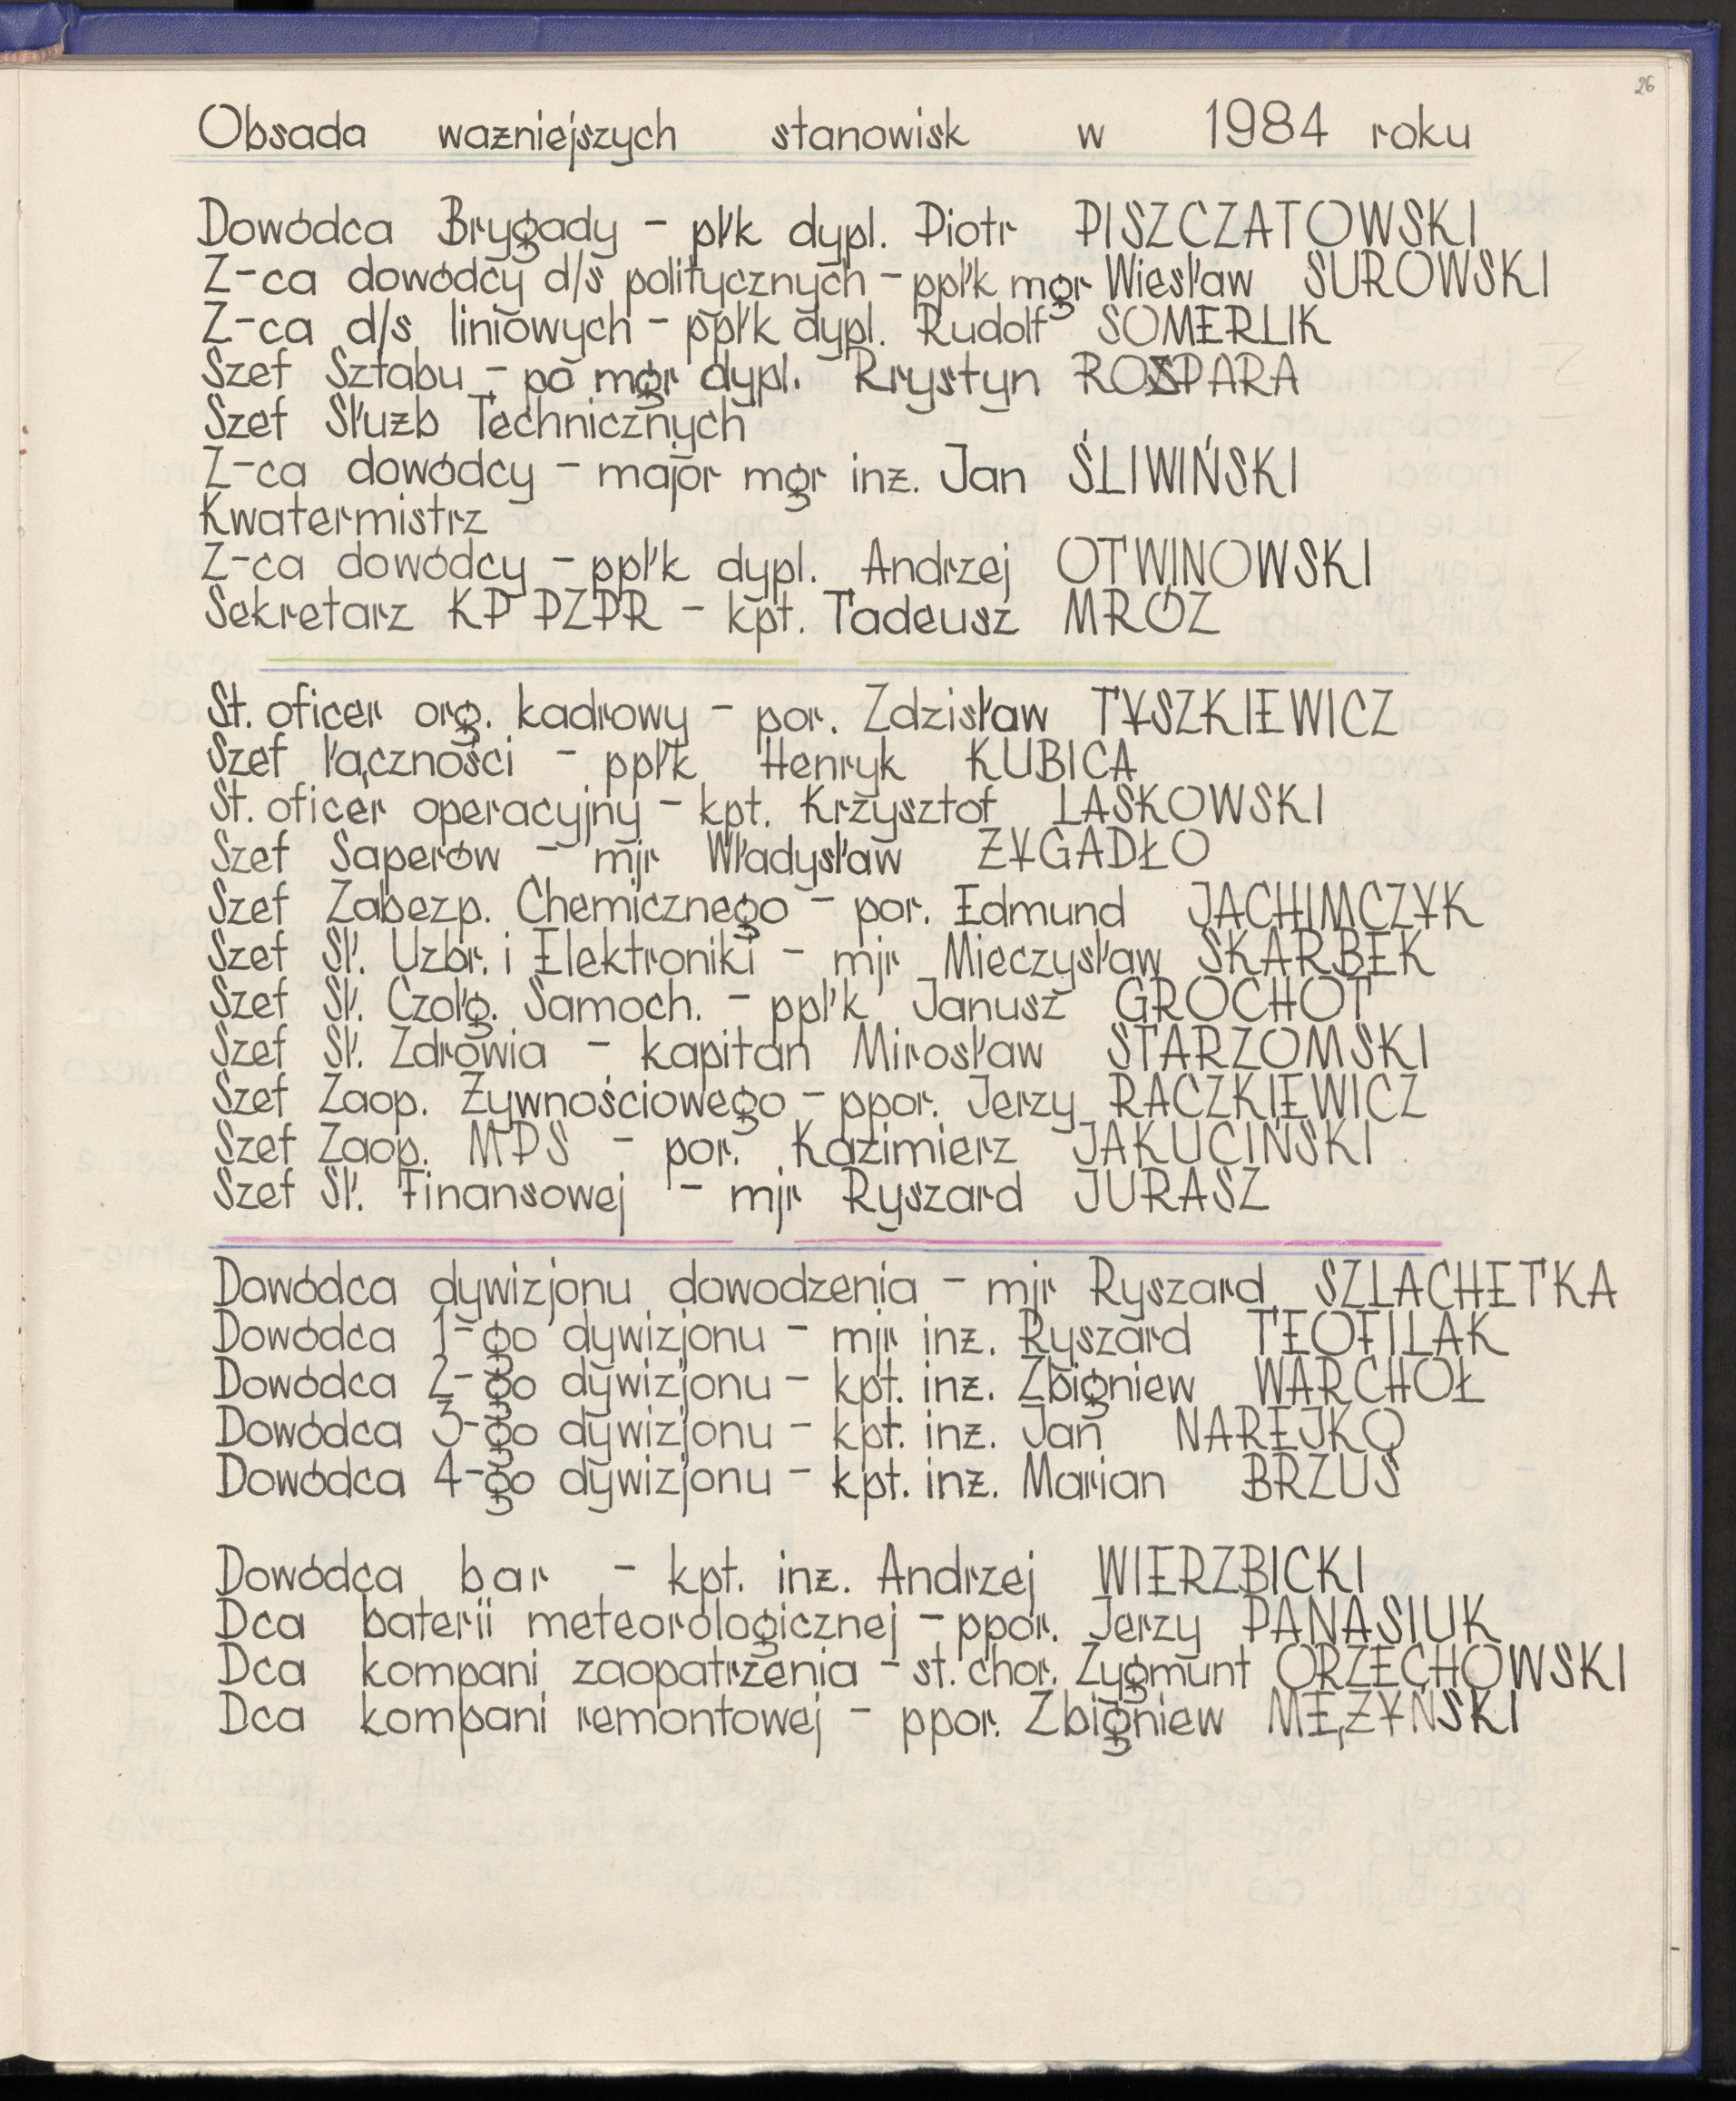 26
Obsada ważniejszych stanowisk w 1984 roku
Dowódca Brygady - płk dypl. Piotr PISZCZATOWSKI
Z-ca dowódcy d/s politycznych - ppłk mgr Wiesław SUROWSKI
Z-ca d/s liniowych - ppłk dypl. Rudolf SOMERLIK
Szef Sztabu - po mgr dypl. Krystyn ROSPARA
Szef Służb Technicznych
Z-ca dowódcy - major mgr inż. Jan ŚLIWIŃSKI
Kwatermistrz
Z-ca dowódcy - ppłk dypl. Andrzej OTWINOWSKI
Sekretarz KP PZPR - kpt. Tadeusz MRÓZ
St. oficer org. kadrowy - por. Zdzisław TYSZKIEWICZ
Szef łączności - ppłk Henryk KUBICA
St. oficer operacyjny - kpt. Krzysztof LASKOWSKI
Szef Saperów - mjr Władysław ZYGADŁO
Szef Zabezp. Chemicznego - por. Edmund JACHIMCZYK
Szef Sł. Uzbr. i Elektroniki - mjr Mieczysław SKARBEK
Szef Sł. Czołg. Samoch. - ppłk Janusz GROCHOT
Szef Sł. Zdrowia - kapitan Mirosław STARZOMSKI
Szef Zaop. Żywnościowego - ppor. Jerzy RACZKIEWICZ
Szef Zaop. MPS - por. Kazimierz JAKUCIŃSKI
Szef Sł. Finansowej - mjr Ryszard JURASZ
Dowódca dywizjonu dowodzenia - mjr Ryszard SZLACHETKA
Dowódca 1-go dywizjonu - mjr inż. Ryszard TEOFILAK
Dowódca 2-go dywizjonu - kpt. inż. Zbigniew WARCHOŁ
Dowódca 3-go dywizjonu - kpt. inż. Jan NAREJKO
Dowódca 4-go dywizjonu - kpt. inż. Marian BRZUŚ
Dowódca bar - kpt. inż. Andrzej WIERZBICKI
Dca baterii meteorologicznej - ppor. Jerzy PANASIUK
Dca kompani zaopatrzenia - st. chor. Zygmunt ORZECHOWSKI
Dca kompani remontowej - ppor. Zbigniew MĘŻYŃSKI